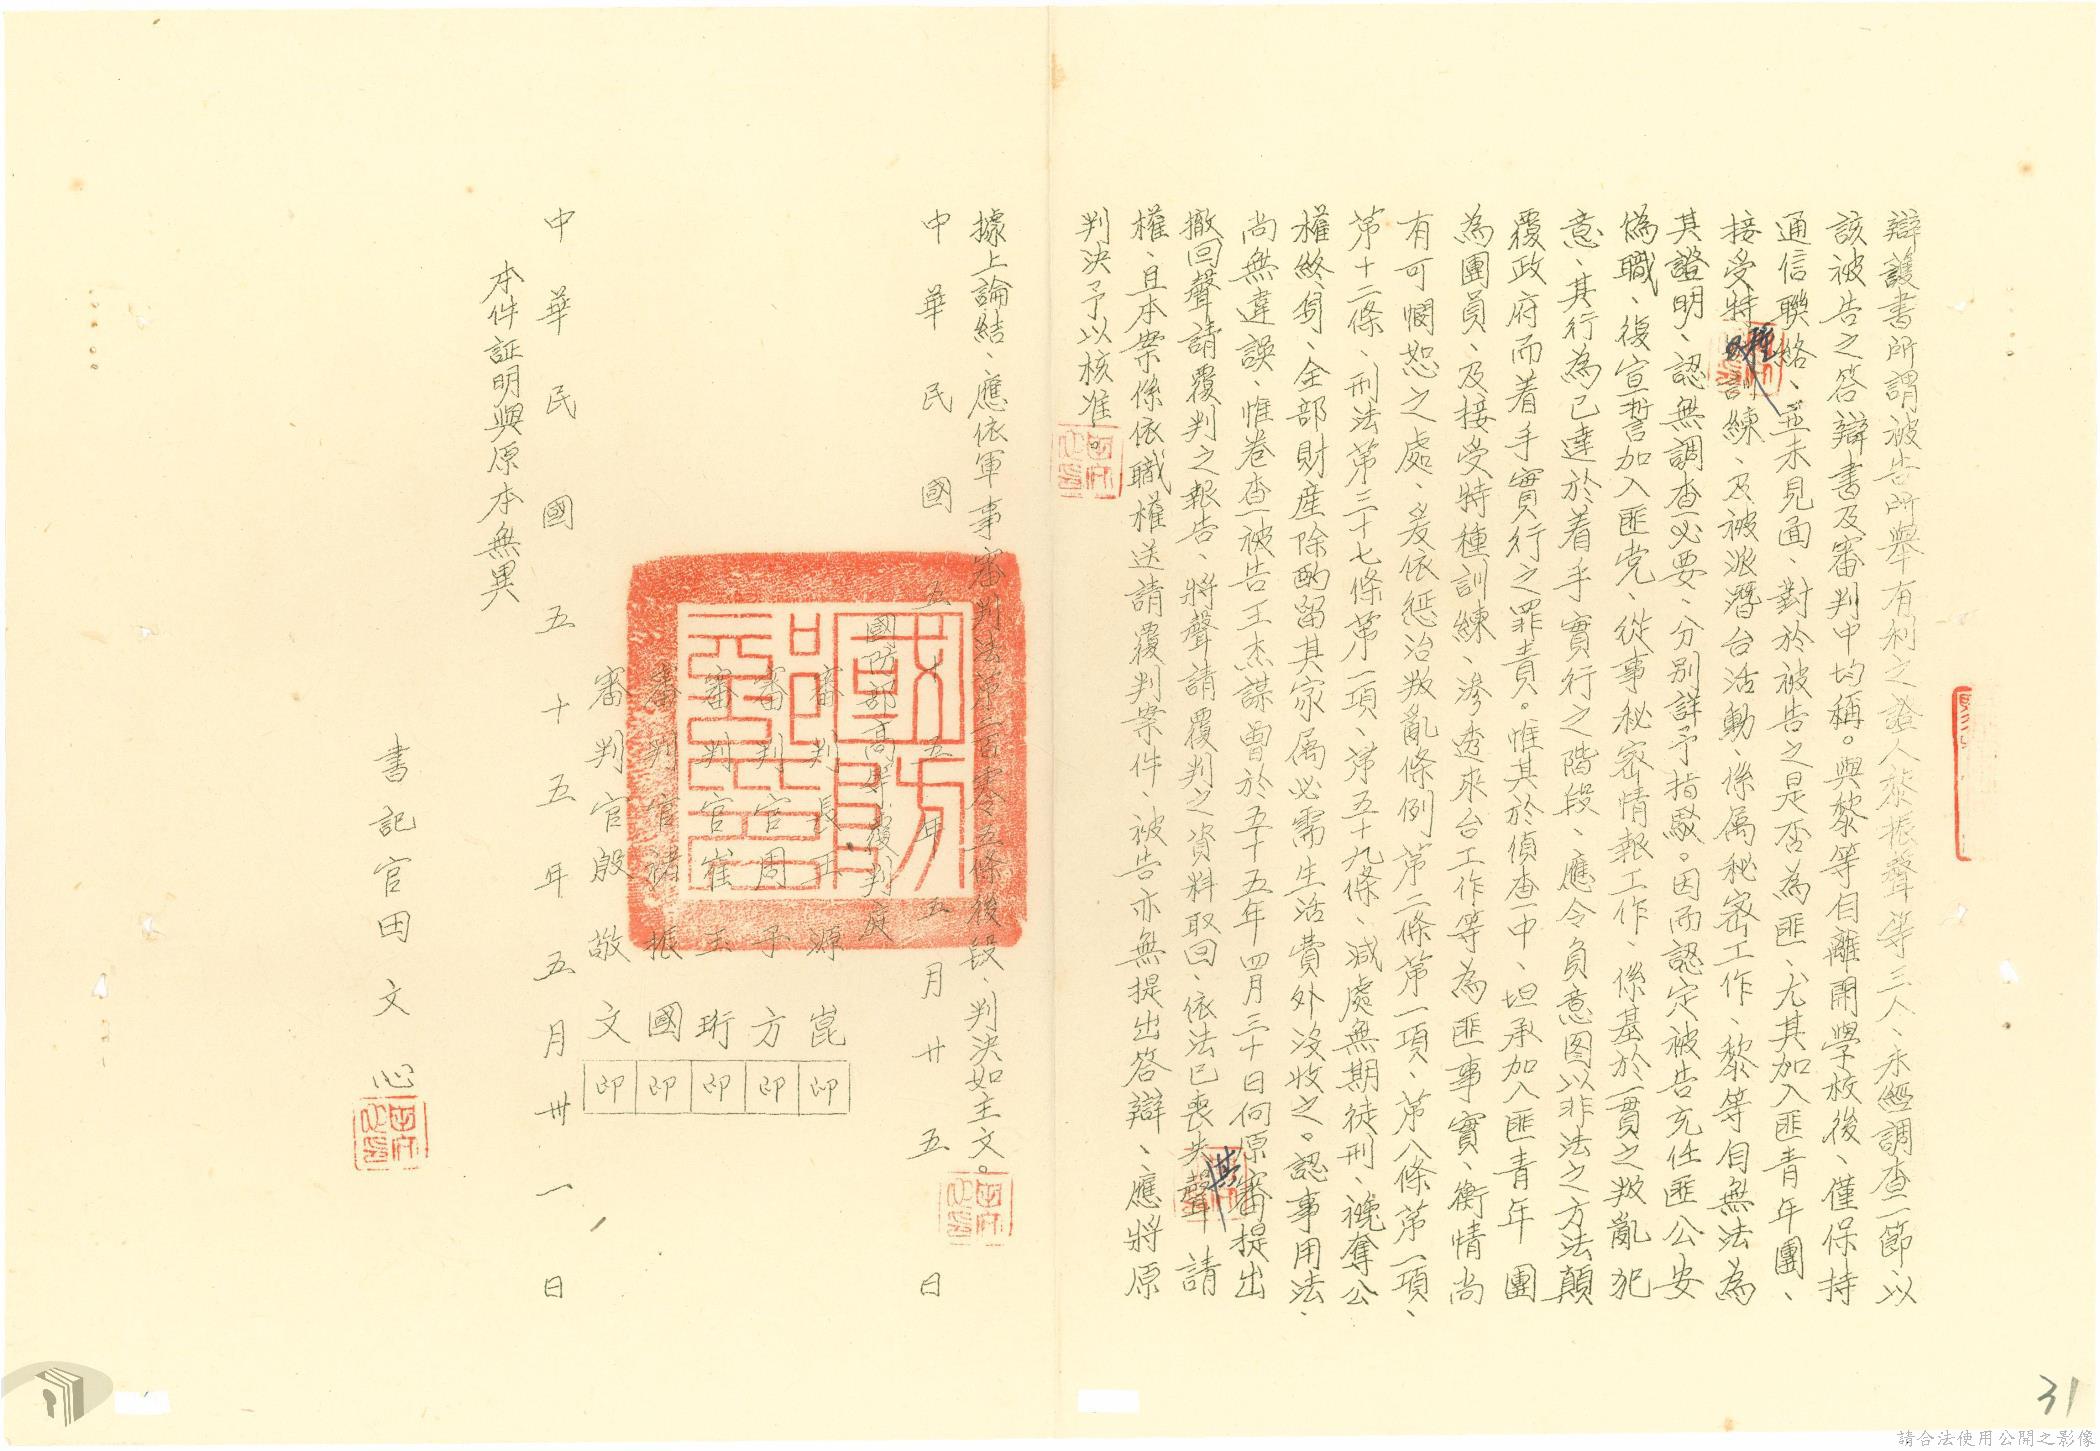 辯護書所謂被告所舉有利之證人黎振聲等三人、未經調查一節、以
該被告之答辯書及審判中均稱。與黎等自離開學校後、僅保持
通信聯絡、並未見面、對於被告之是否為匪、尤其加入匪青年團、
接受特種訓練、及被派潛台活動、係属秘密工作、黎等自無法為
其證明、認無調查必要、分別詳予指駁。因而認定被告充任匪公安
偽職、復宣誓加入匪党、從事秘密情報工作、係基於一貫之叛亂犯
意、其行為已達於着手實行之階段、應令負意图以非法之方法顛
覆政府而着手實行之罪責。惟其於偵查中、坦承加入匪青年團
為團員、及接受特種訓練、滲透來台工作等為匪事實、衡情尚
有可憫恕之處、爰依惩治叛亂條例第二條第一項、第八條第一項、
第十二條、刑法第三十七條第一項、第五十九條、減處無期徒刑、褫奪公
權終身、全部財産除酌留其家属必需生活費外沒收之。認事用法、
尚無違誤、惟卷查被告王杰謀曾於五十五年四月三十日向原審提出
撤回聲請覆判之報告、將聲請覆判之資料取回、依法已喪失其聲請
權、且本案係依職權送請覆判案件、被告亦無提出答辯、應將原
判決予以核准。
據上論結、應依軍事審判法第二百零五條後段、判決如主文。
中華民國五十五年五月廿五日
國防部高等覆判庭
審判長王源崑印
審判官周子方印
審判官崔玉珩印
審判官褚振國印
審判官殷敬文印
中華民國五十五年五月卅一日
本件証明與原本無異
書記官田文心
31
請合法使用公開之影像